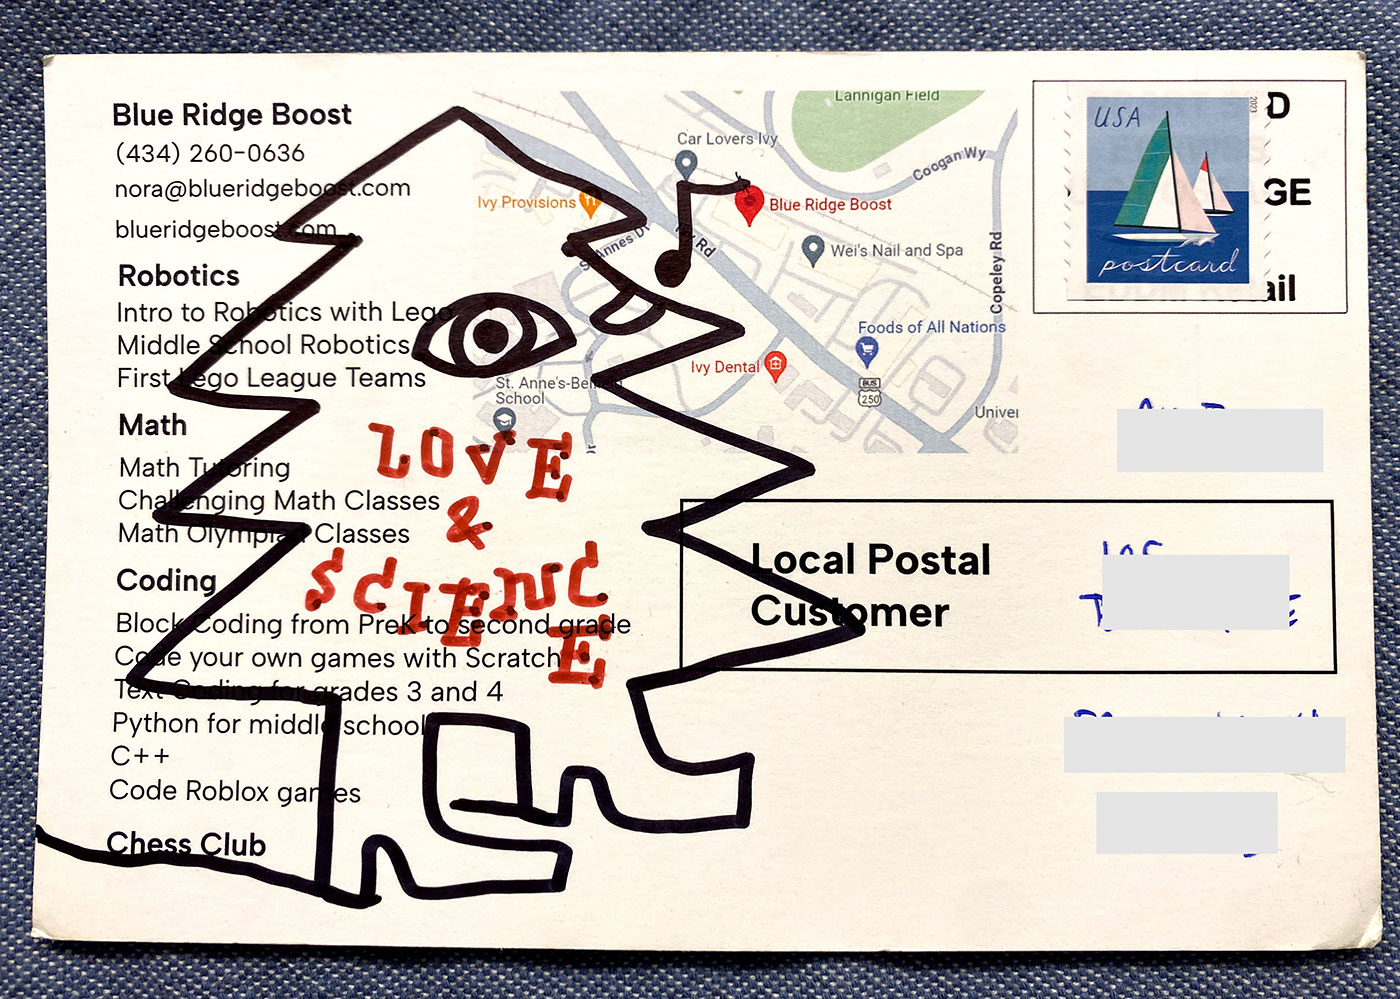 Blue Ridge Boost
(434) 260-0636
nora@blueridgeboost.com
blueridgeboost.com
Robotics
Intro to Robotics with Lego
Middle School Robotics
First Lego League Teams
Math
Math Tutoring
Challenging Math Classes
Math Olympiad Classes
Coding
Block Coding from PreK to second grade
Code your own games with Scratch
Text Coding for grades 3 and 4
Python for middle school
C++
Code Roblox games
Chess Club
LOVE
&
SCIENC
E
Lannigan Field
Car Lovers Ivy
Coogan Wy
Ivy Provisions
Blue Ridge Boost
St Annes Dr
Rd
Wei's Nail and Spa
Copeley Rd
Foods of All Nations
Ivy Dental
BUS
250
St. Anne's-Belfield
School
Univer
USA
2023
postcard
D
GE
ail
Local Postal
Customer